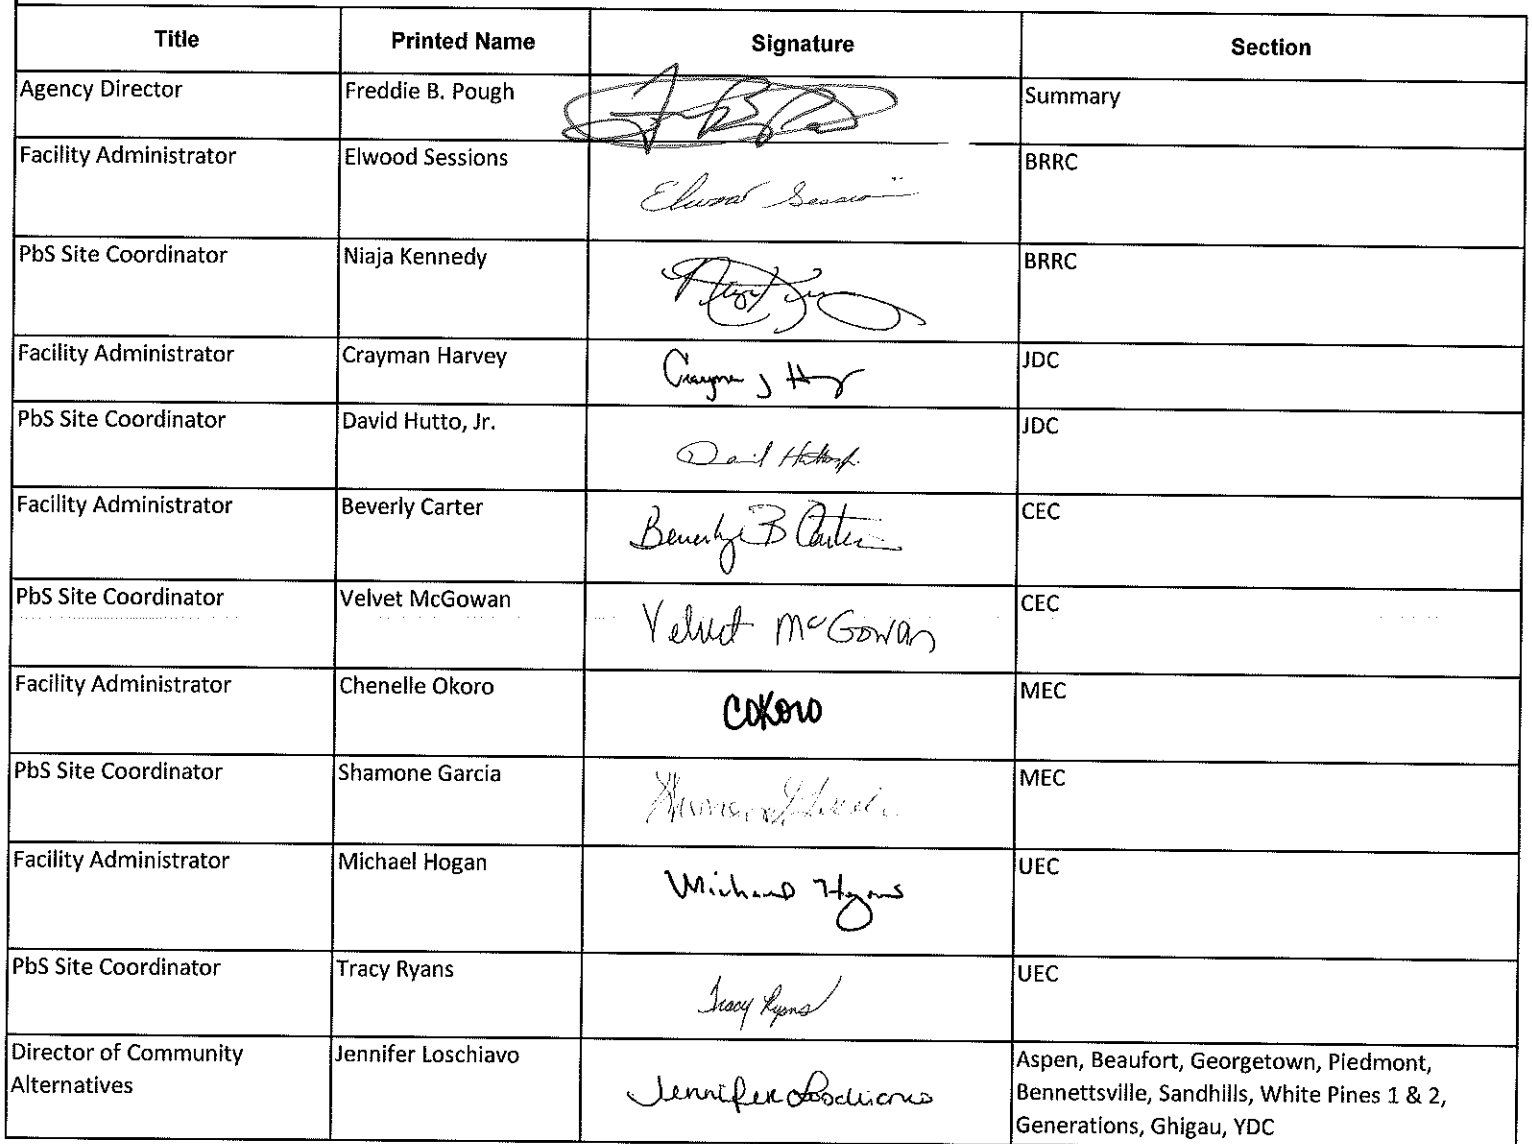 Title Printed Name Signature Section
Agency Director Freddie B. Pough Summary
Facility Administrator Elwood Sessions Elwood Sessions BRRC
PbS Site Coordinator Niaja Kennedy BRRC
Facility Administrator Crayman Harvey Crayman J Harvey JDC
PbS Site Coordinator David Hutto, Jr. David Hutto Jr. JDC
Facility Administrator Beverly Carter Beverly B Carter CEC
PbS Site Coordinator Velvet McGowan Velvet McGowan CEC
Facility Administrator Chenelle Okoro COKoro MEC
PbS Site Coordinator Shamone Garcia MEC
Facility Administrator Michael Hogan Michael Hogan UEC
PbS Site Coordinator Tracy Ryans Tracy Ryans UEC
Director of Community Jennifer Loschiavo Jennifer Loschiavo Aspen, Beaufort, Georgetown, Piedmont,
Alternatives Bennettsville, Sandhills, White Pines 1 & 2,
Generations, Ghigau, YDC